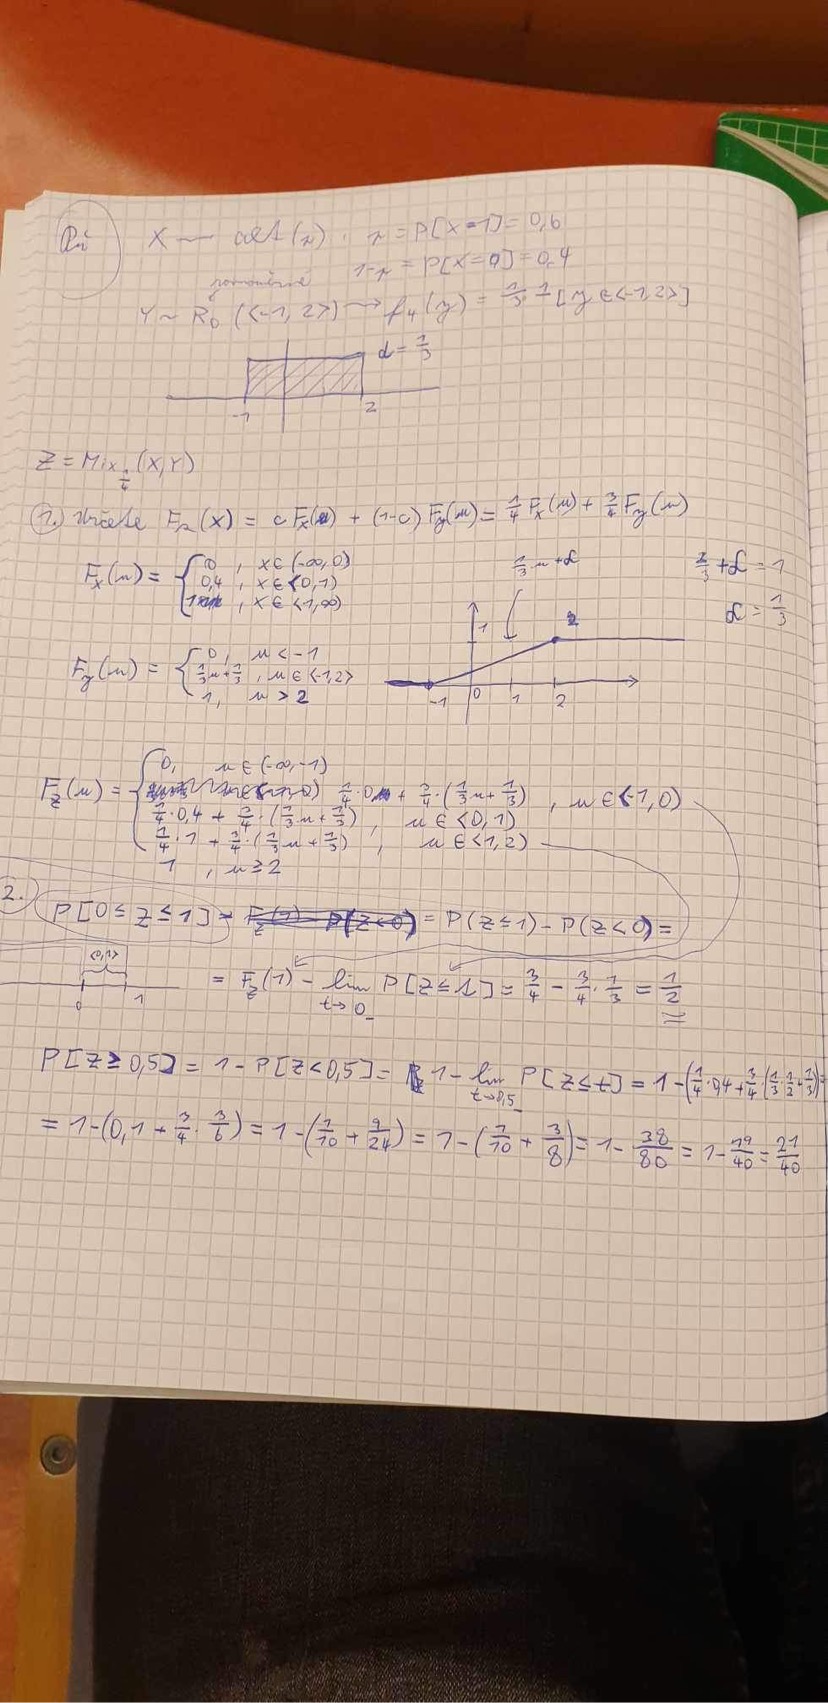 Př
X ~ alt(p), p = P[X=1] = 0,6
1-p = P[X=0] = 0,4
rovnoměrné
Y ~ R₀(<-1,2>) → f_Y(y) = 1/3 · 1[y ∈ <-1,2>]
d = 1/3
-1 2
Z = Mix_{1/4}(X,Y)
1. Určete F_z(x) = c F_x(u) + (1-c) F_y(u) = 1/4 F_x(u) + 3/4 F_y(u)
F_x(u) = { 0 , x ∈ (-∞,0)
0,4 , x ∈ <0,1)
1 , x ∈ <1,∞)
1/3 u + d
2/3 + d = 1
d = 1/3
F_y(u) = { 0, u < -1
1/3 u + 1/3 , u ∈ <-1,2>
1, u > 2
1 2
-1 0 1 2
F_z(u) = { 0, u ∈ (-∞,-1)
1/4 · 0 + 3/4 · (1/3 u + 1/3) , u ∈ <-1,0)
1/4 · 0,4 + 3/4 · (1/3 u + 1/3) , u ∈ <0,1)
1/4 · 1 + 3/4 · (1/3 u + 1/3) , u ∈ <1,2)
1 , u ≥ 2
2. P[0 ≤ Z ≤ 1] = F_z(1) - P(Z<0) = P(Z ≤ 1) - P(Z < 0) =
<0,1>
0 1
= F_z(1) - lim_{t→0_-} P[Z ≤ t] = 3/4 - 3/4 · 1/3 = 1/2
P[Z ≥ 0,5] = 1 - P[Z < 0,5] = 1 - lim_{t→0,5_-} P[Z ≤ t] = 1 - (1/4 · 0,4 + 3/4 · (1/3 · 1/2 + 1/3)) =
= 1 - (0,1 + 3/4 · 3/6) = 1 - (1/10 + 9/24) = 1 - (1/10 + 3/8) = 1 - 38/80 = 1 - 19/40 = 21/40